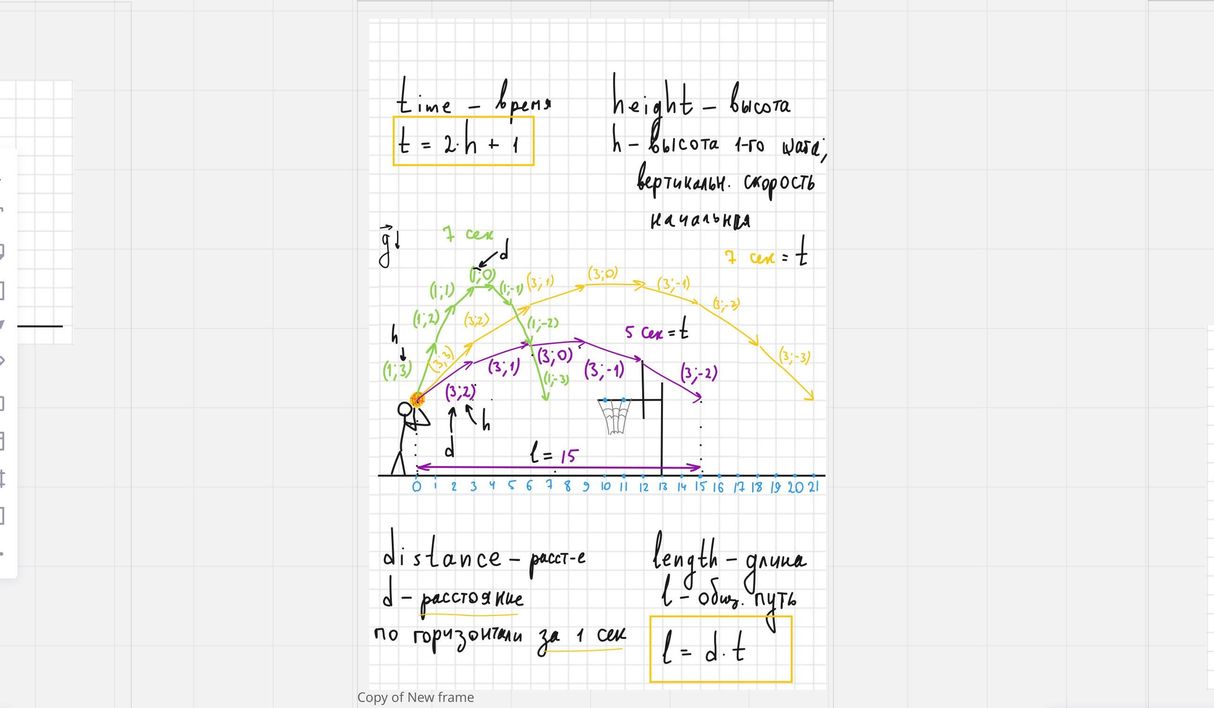 time - время
t = 2·h + 1
height - высота
h - высота 1-го шага,
вертикальн. скорость
начальная
g
7 сек
d
7 сек = t
(1;0)
(1;1)
(1;-1)
(3;1)
(3;0)
(3;-1)
(1;2)
(3;2)
(1;-2)
(3;-2)
h
5 сек = t
(1;3)
(3;3)
(3;1)
(3;0)
(3;-1)
(3;-2)
(3;-3)
(3;2)
(1;-3)
h
d
l = 15
0 1 2 3 4 5 6 7 8 9 10 11 12 13 14 15 16 17 18 19 20 21
distance - расст-е
d - расстояние
по горизонтали за 1 сек
length - длина
l - общ. путь
l = d·t
Copy of New frame